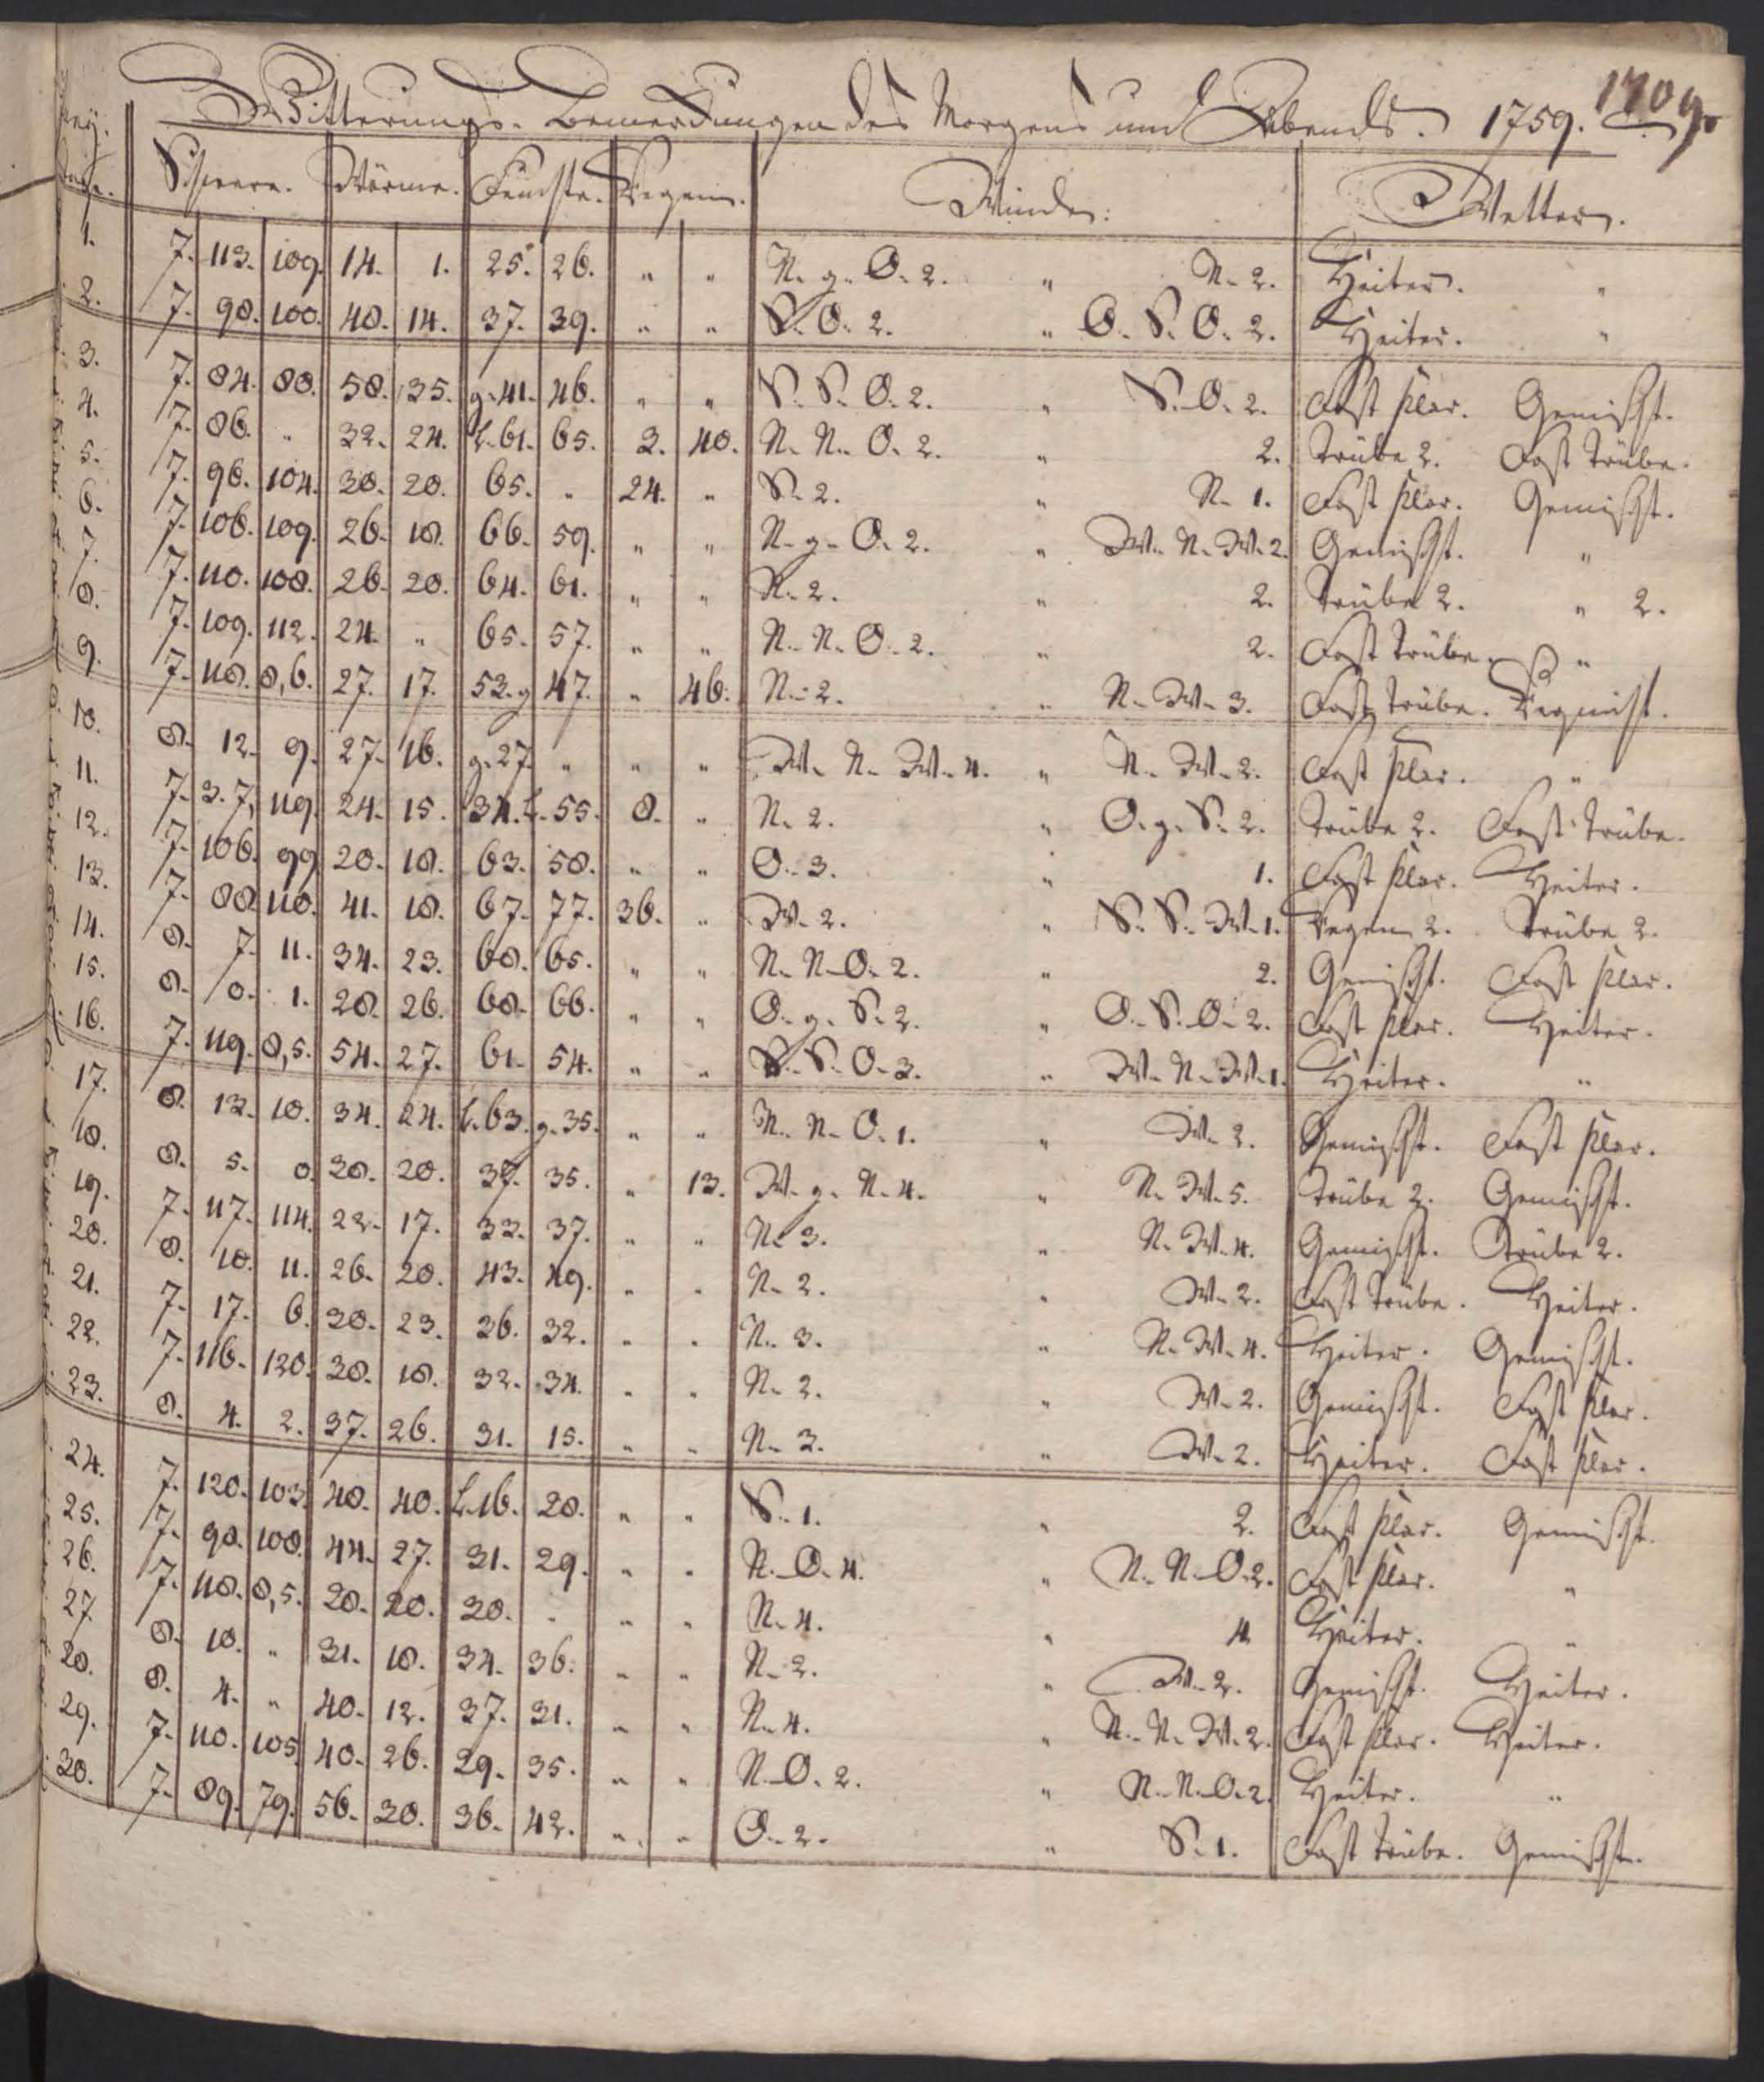 Witterungs-Bemerckungen des Morgens und Abends. 1759. 1709.
Schwere. Wärme. Feuchte. Regen. Winde. Wetter.
1. 7. 113. 109. 14. 1. 25. 26. " " N. g. O. 2. " N. 2. Heiter. "
2. 7. 98. 100. 48. 14. 37. 39. " " S. O. 2. " O. S. O. 2. Heiter. "
3. 7. 84. 88. 58. 35. g. 41. 46. " " S. S. O. 2. " S. O. 2. Fast klar. Gemischt.
4. 7. 86. " 32. 24. L. 61. 65. 3. 40. N. N. O. 2. " 2. Trübe 2. Fast Trübe.
5. 7. 96. 104. 30. 20. 65. " 24. " S. 2. " N. 1. Fast klar. Gemischt.
6. 7. 106. 109. 26. 18. 66. 59. " " N. g. O. 2. " W. N. W. 2. Gemischt. "
7. 7. 110. 108. 26. 20. 64. 61. " " N. 2. " 2. Trübe 2. " 2.
8. 7. 109. 112. 24. " 65. 57. " " N. N. O. 2. " 2. Fast Trübe. "
9. 7. 118. 8,6. 27. 17. 53. g 47. " 46. N. 2. " N. W. 3. Fast Trübe. Regnicht.
10. 8. 12. 9. 27. 16. g. 27. " " " W. N. W. 4. " N. W. 2. Fast klar. "
11. 7. 3. 7, 119. 24. 15. 34. L. 55. 8. " N. 2. " O. g. S. 2. Trübe 2. Fast Trübe.
12. 7. 106. 99 20. 18. 63. 58. " " O. 3. " 1. Fast klar. Heiter.
13. 7. 88. 118. 41. 18. 67. 77. 36. " W. 2. " S. S. W. 1. Regen 2. Trübe 2.
14. 8. 7. 11. 34. 23. 68. 65. " " N. N. O. 2. " 2. Gemischt. Fast klar.
15. 8. 0. 1. 28. 26. 68. 66. " " O. g. S. 2. " O. S. O. 2. Fast klar. Heiter.
16. 7. 119. 8,5. 54. 27. 61. 54. " " S. S. O. 3. " W. N. W. 1. Heiter. "
17. 8. 13. 10. 34. 24. L. 63. g. 35. " " N. N. O. 1. " W. 2. Gemischt. Fast klar.
18. 8. 5. 0. 28. 20. 37. 35. " 13. W. g. N. 4. " N. W. 5. Trübe 2. Gemischt.
19. 7. 117. 114. 22. 17. 33. 37. " " N. 3. " N. W. 4. Gemischt. Trübe 2.
20. 8. 10. 11. 26. 20. 43. 49. " " N. 2. " W. 2. Fast Trübe. Heiter.
21. 7. 17. 6. 30. 23. 36. 32. " " N. 3. " N. W. 4. Heiter. Gemischt.
22. 7. 116. 120. 38. 18. 32. 34. " " N. 2. " W. 2. Gemischt. Fast klar.
23. 8. 4. 2. 37. 26. 31. 15. " " N. 3. " W. 2. Heiter. Fast klar.
24. 7. 120. 103. 40. 40. L. 16. 28. " " S. 1. " 2. Fast klar. Gemischt.
25. 7. 98. 108. 44. 27. 31. 29. " " N. O. 4. " N. N. O. 2. Fast klar. "
26. 7. 118. 8,5. 28. 20. 30. " " " N. 4. " 4 Heiter. "
27. 8. 10. " 31. 18. 34. 36. " " N. 2. " W. 2. Gemischt. Heiter.
28. 8. 4. " 40. 12. 37. 31. " " N. 4. " N. N. W. 2. Fast klar. Heiter.
29. 7. 110. 105. 40. 26. 29. 35. " " N. O. 2. " N. N. O. 2. Heiter. "
30. 7. 89. 79. 56. 30. 36. 42. " " O. 2. " S. 1. Fast Trübe. Gemischt.